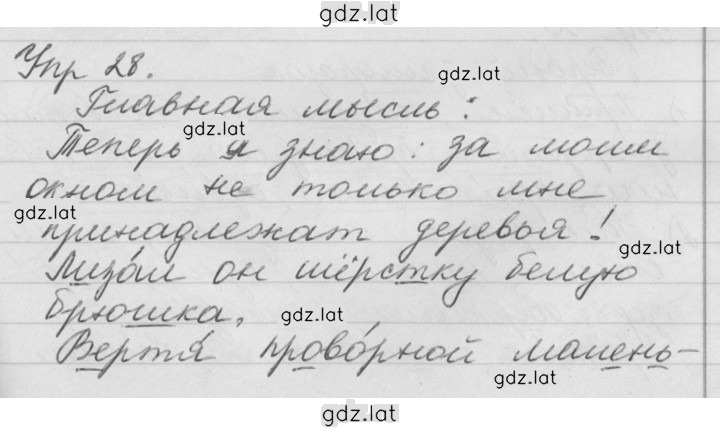 gdz.lat
Упр 28.
gdz.lat
Главная мысль:
gdz.lat
Теперь я знаю: за моим
окном не только мне
gdz.lat
принадлежат деревья!
gdz.lat
Лиза́л он шёрстку белую
брюшка,
gdz.lat
Вертя́ прово́рной малень-
gdz.lat
gdz.lat